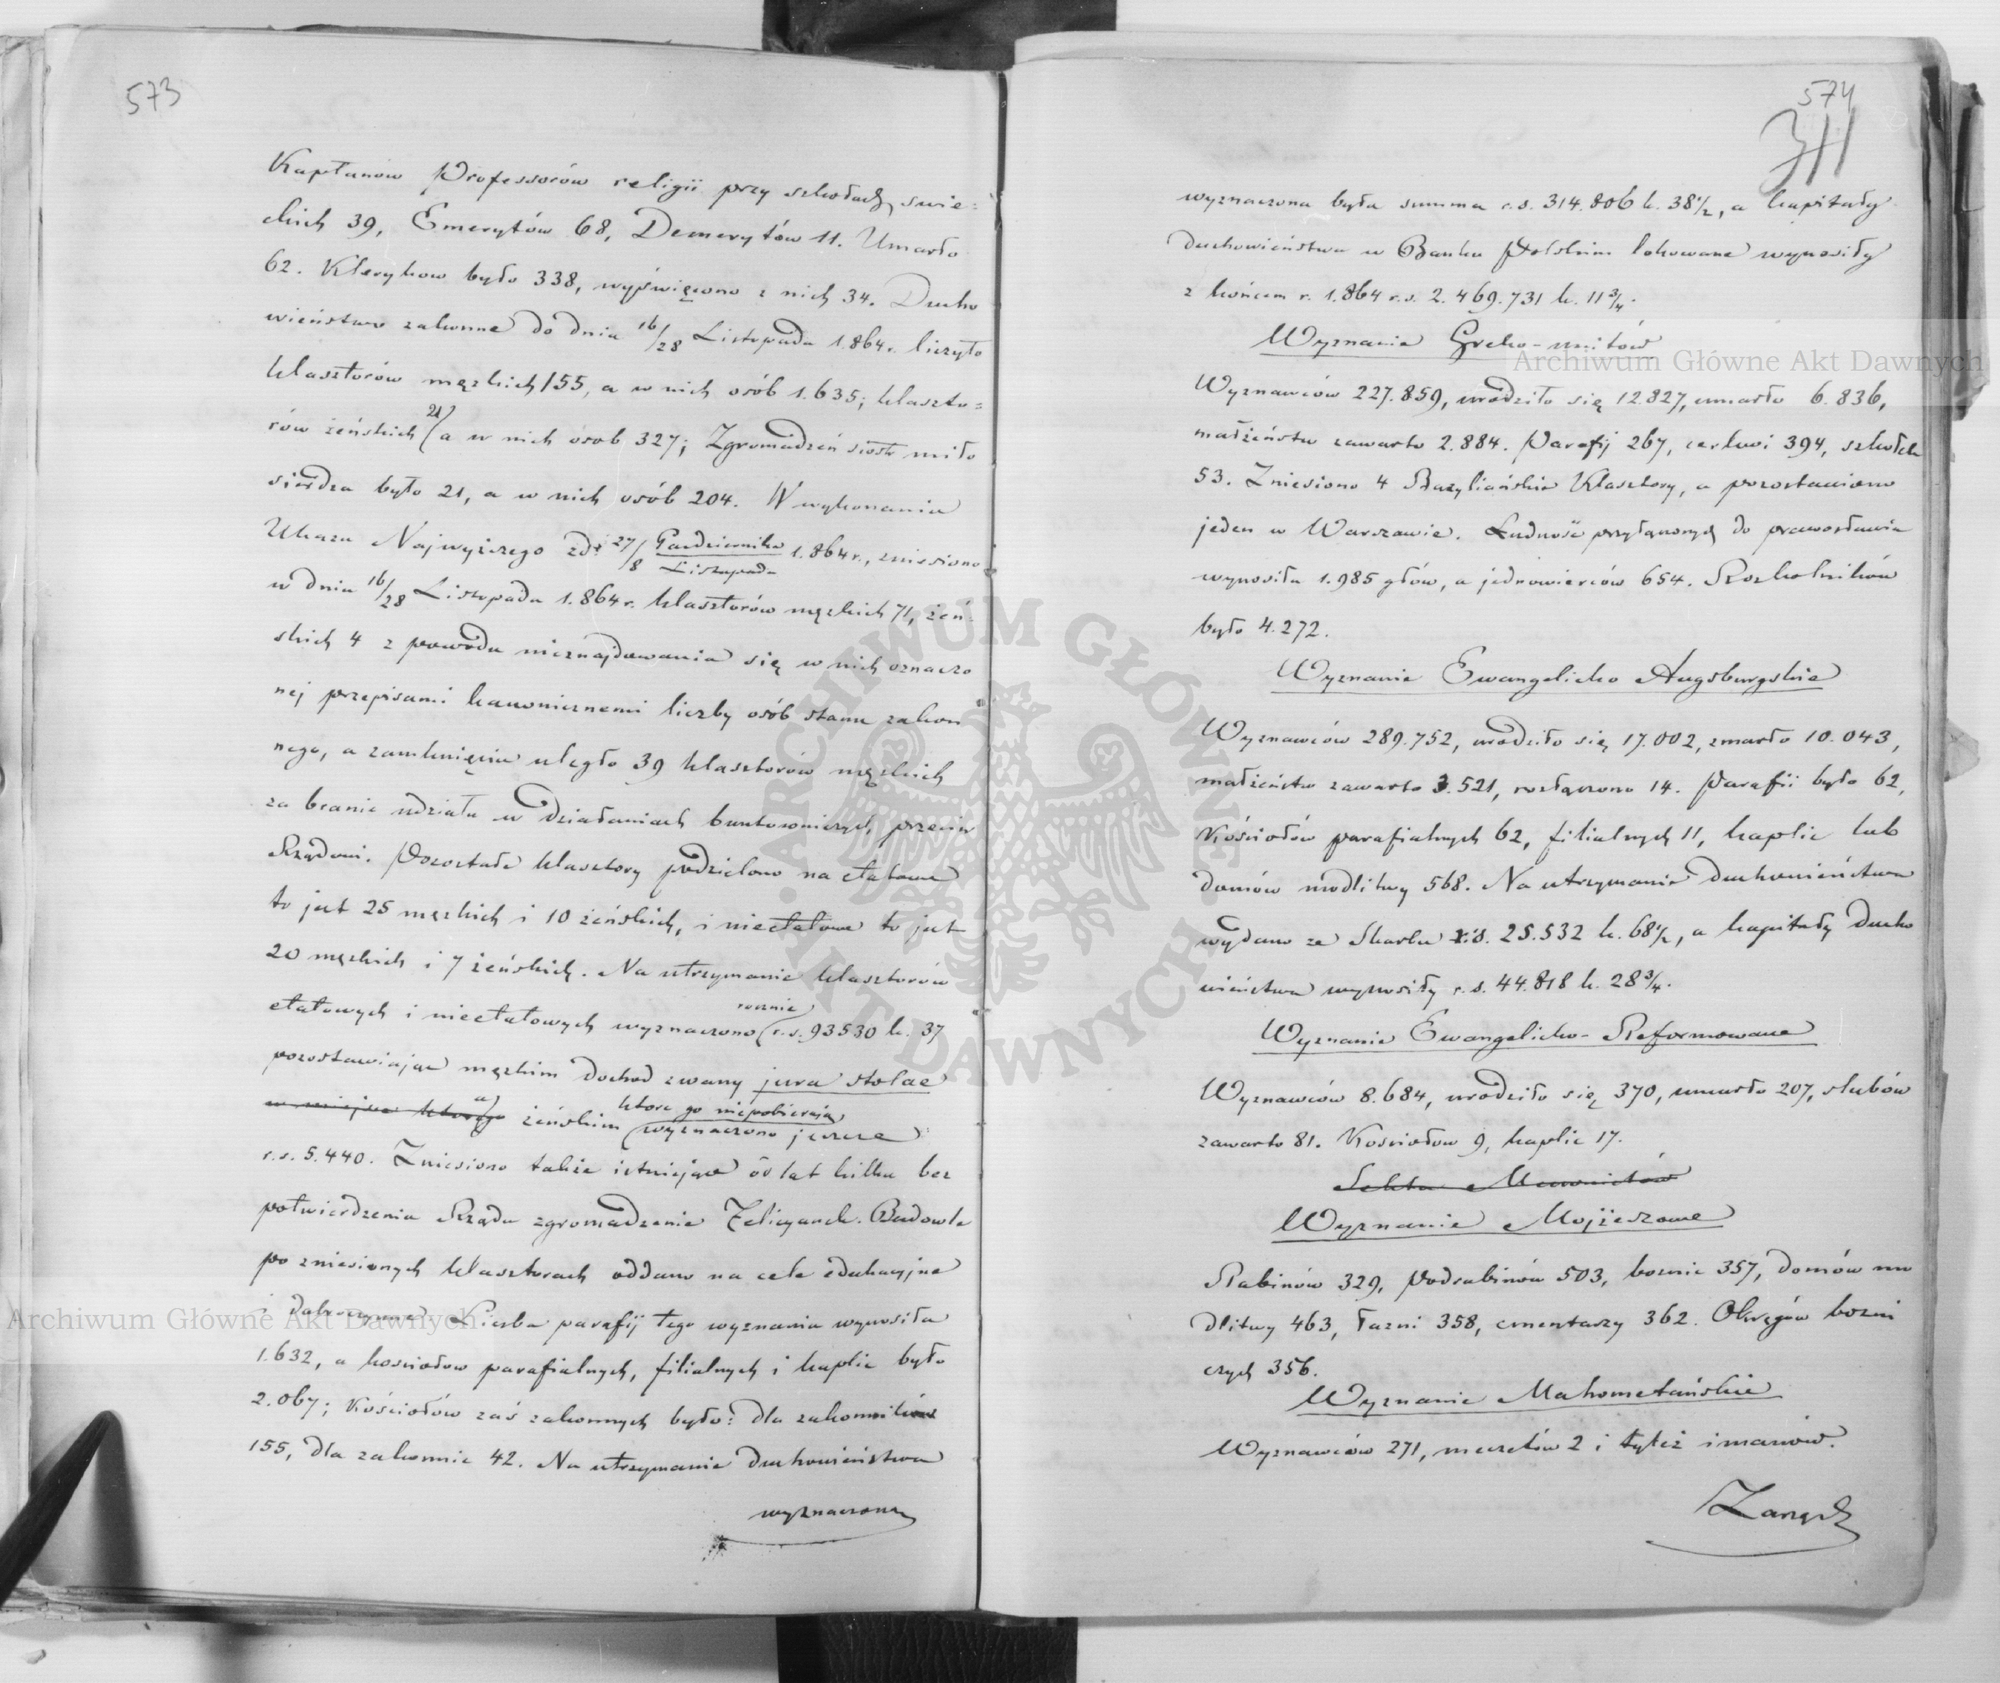 573
Kapłanów Professorów religii przy szkołach świe-
ckich 39, Emerytów 68, Demerytów 11. Umarło
62. Kleryków było 338, wyświęcono z nich 34. Ducho
wieństwo zakonne do dnia 16/28 Listopada 1.864 r. liczyło
klasztorów męzkich 155, a w nich osób 1.635; klaszto-
rów żeńskich 21 a w nich osob 327; Zgromadzeń siostr miło
sierdza było 21, a w nich osób 204. W wykonaniu
Ukazu Najwyższego zd: 27/8 Października/Listopada 1.864 r., zniesiono
w dniu 16/28 Listopada 1.864 r. klasztorów męzkich 71, żeń-
skich 4 z powodu nieznajdowania się w nich oznaczo
nej przepisami kanonicznemi liczby osób stanu zakon
nego, a zamknięciu uległo 39 klasztorów męzkich
za branie udziału w działaniach buntowniczych przeciw
Rządowi. Pozostałe klasztory podzielono na etatowe
to jest 25 męzkich i 10 żeńskich, i nieetatowe to jest
20 męzkich i 7 żeńskich. Na utrzymanie klasztorów
etatowych i nieetatowych wyznaczono rocznie r.s. 93530 k. 37
pozostawiając męzkim dochod zwany jura stolae
w miejsce którego a żeńskim które go niepobierają wyznaczono jeszcze
r.s. 5.440. Zniesiono także istniejące od lat kilku bez
potwierdzenia Rządu zgromadzenie Felicyanek. Budowle
po zniesionych klasztorach oddano na cele edukacyjne
i dobroczynne. Liczba parafij tego wyznania wynosiła
1.632, a kosciołow parafialnych, filialnych i kaplic było
2.067; Kościołów zaś zakonnych było: dla zakonników
155, dla zakonnic 42. Na utrzymanie duchowieństwa
wyznaczona
574
311
wyznaczona była summa r.s. 314.806 k. 38 1/2, a kapitały
duchowieństwa w Banku Polskim lokowane wynosiły
z końcem r. 1.864 r.s. 2.469.731 k. 11 3/4.
Wyznanie Greko-unitów
Wyznawców 227.859, urodziło się 12.827, umarło 6.836,
małżeństw zawarto 2.884. Parafij 267, cerkwi 394, szkółek
53. Zniesiono 4 Bazyliańskie Klasztory, a pozostawiono
jeden w Warszawie. Ludność przyłączonych do prawosławia
wynosiła 1.985 głów, a jednowierców 654. Rozkolników
było 4.272.
Wyznanie Ewangelicko Augsburgskie
Wyznawców 289.752, urodziło się 17.002, zmarło 10.043,
małżeństw zawarto 3.521, rozłączono 14. Parafii było 62,
Kościołów parafialnych 62, filialnych 11, kaplic lub
domów modlitwy 568. Na utrzymanie duchowieństwa
wydano ze Skarbu r.s. 25.532 k. 68 1/2, a kapitały ducho
wieństwa wynosiły r.s. 44.818 k. 28 3/4.
Wyznanie Ewangelicko-Reformowane
Wyznawców 8.684, urodziło się 370, umarło 207, slubów
zawarto 81. Kosciołow 9, kaplic 17.
Sekta Menonistów
Wyznanie Mojżeszowe
Rabinów 329, Podrabinów 503, bożnic 357, domów mo
dlitwy 463, łazni 358, cmentarzy 362. Okręgów bożni
czych 356.
Wyznanie Mahometańskie
Wyznawców 271, meczetów 2 i tyleż imanów.
Archiwum Główne Akt Dawnych
Archiwum Główne Akt Dawnych
ARCHIWUM GŁÓWNE
AKT DAWNYCH